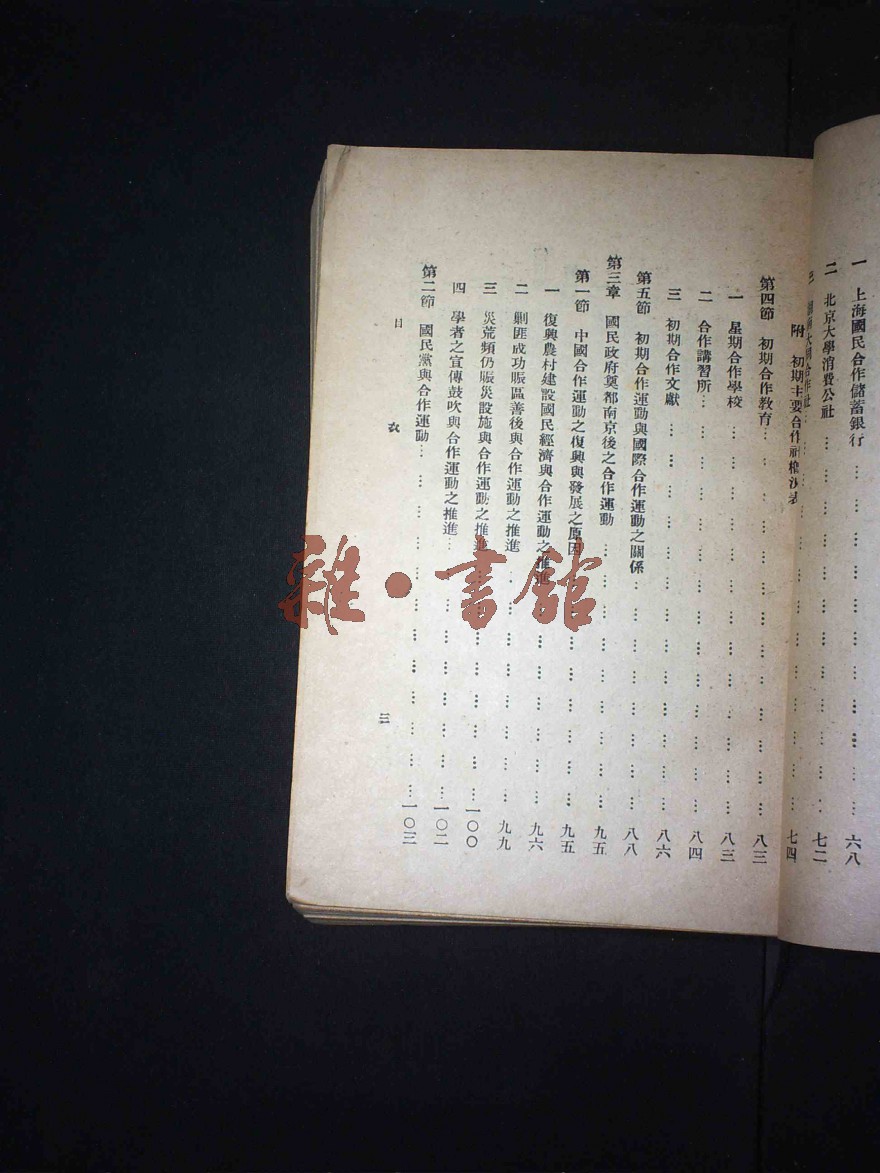 一 上海國民合作儲蓄銀行 六八
二 北京大學消費公社 七二
三 合作社 七四
附 初期主要合作社概況表
第四節 初期合作教育 八三
一 星期合作學校 八三
二 合作講習所 八四
三 初期合作文獻 八六
第五節 初期合作運動與國際合作運動之關係 八八
第三章 國民政府奠都南京後之合作運動 九五
第一節 中國合作運動之復興與發展之原因 九五
一 復興農村建設國民經濟與合作運動之推進 九六
二 剿匪成功賑區善後與合作運動之推進 九九
三 災荒頻仍賑災設施與合作運動之推進 一〇〇
四 學者之宣傳鼓吹與合作運動之推進 一〇二
第二節 國民黨與合作運動 一〇三
目 次 三
雜·書館